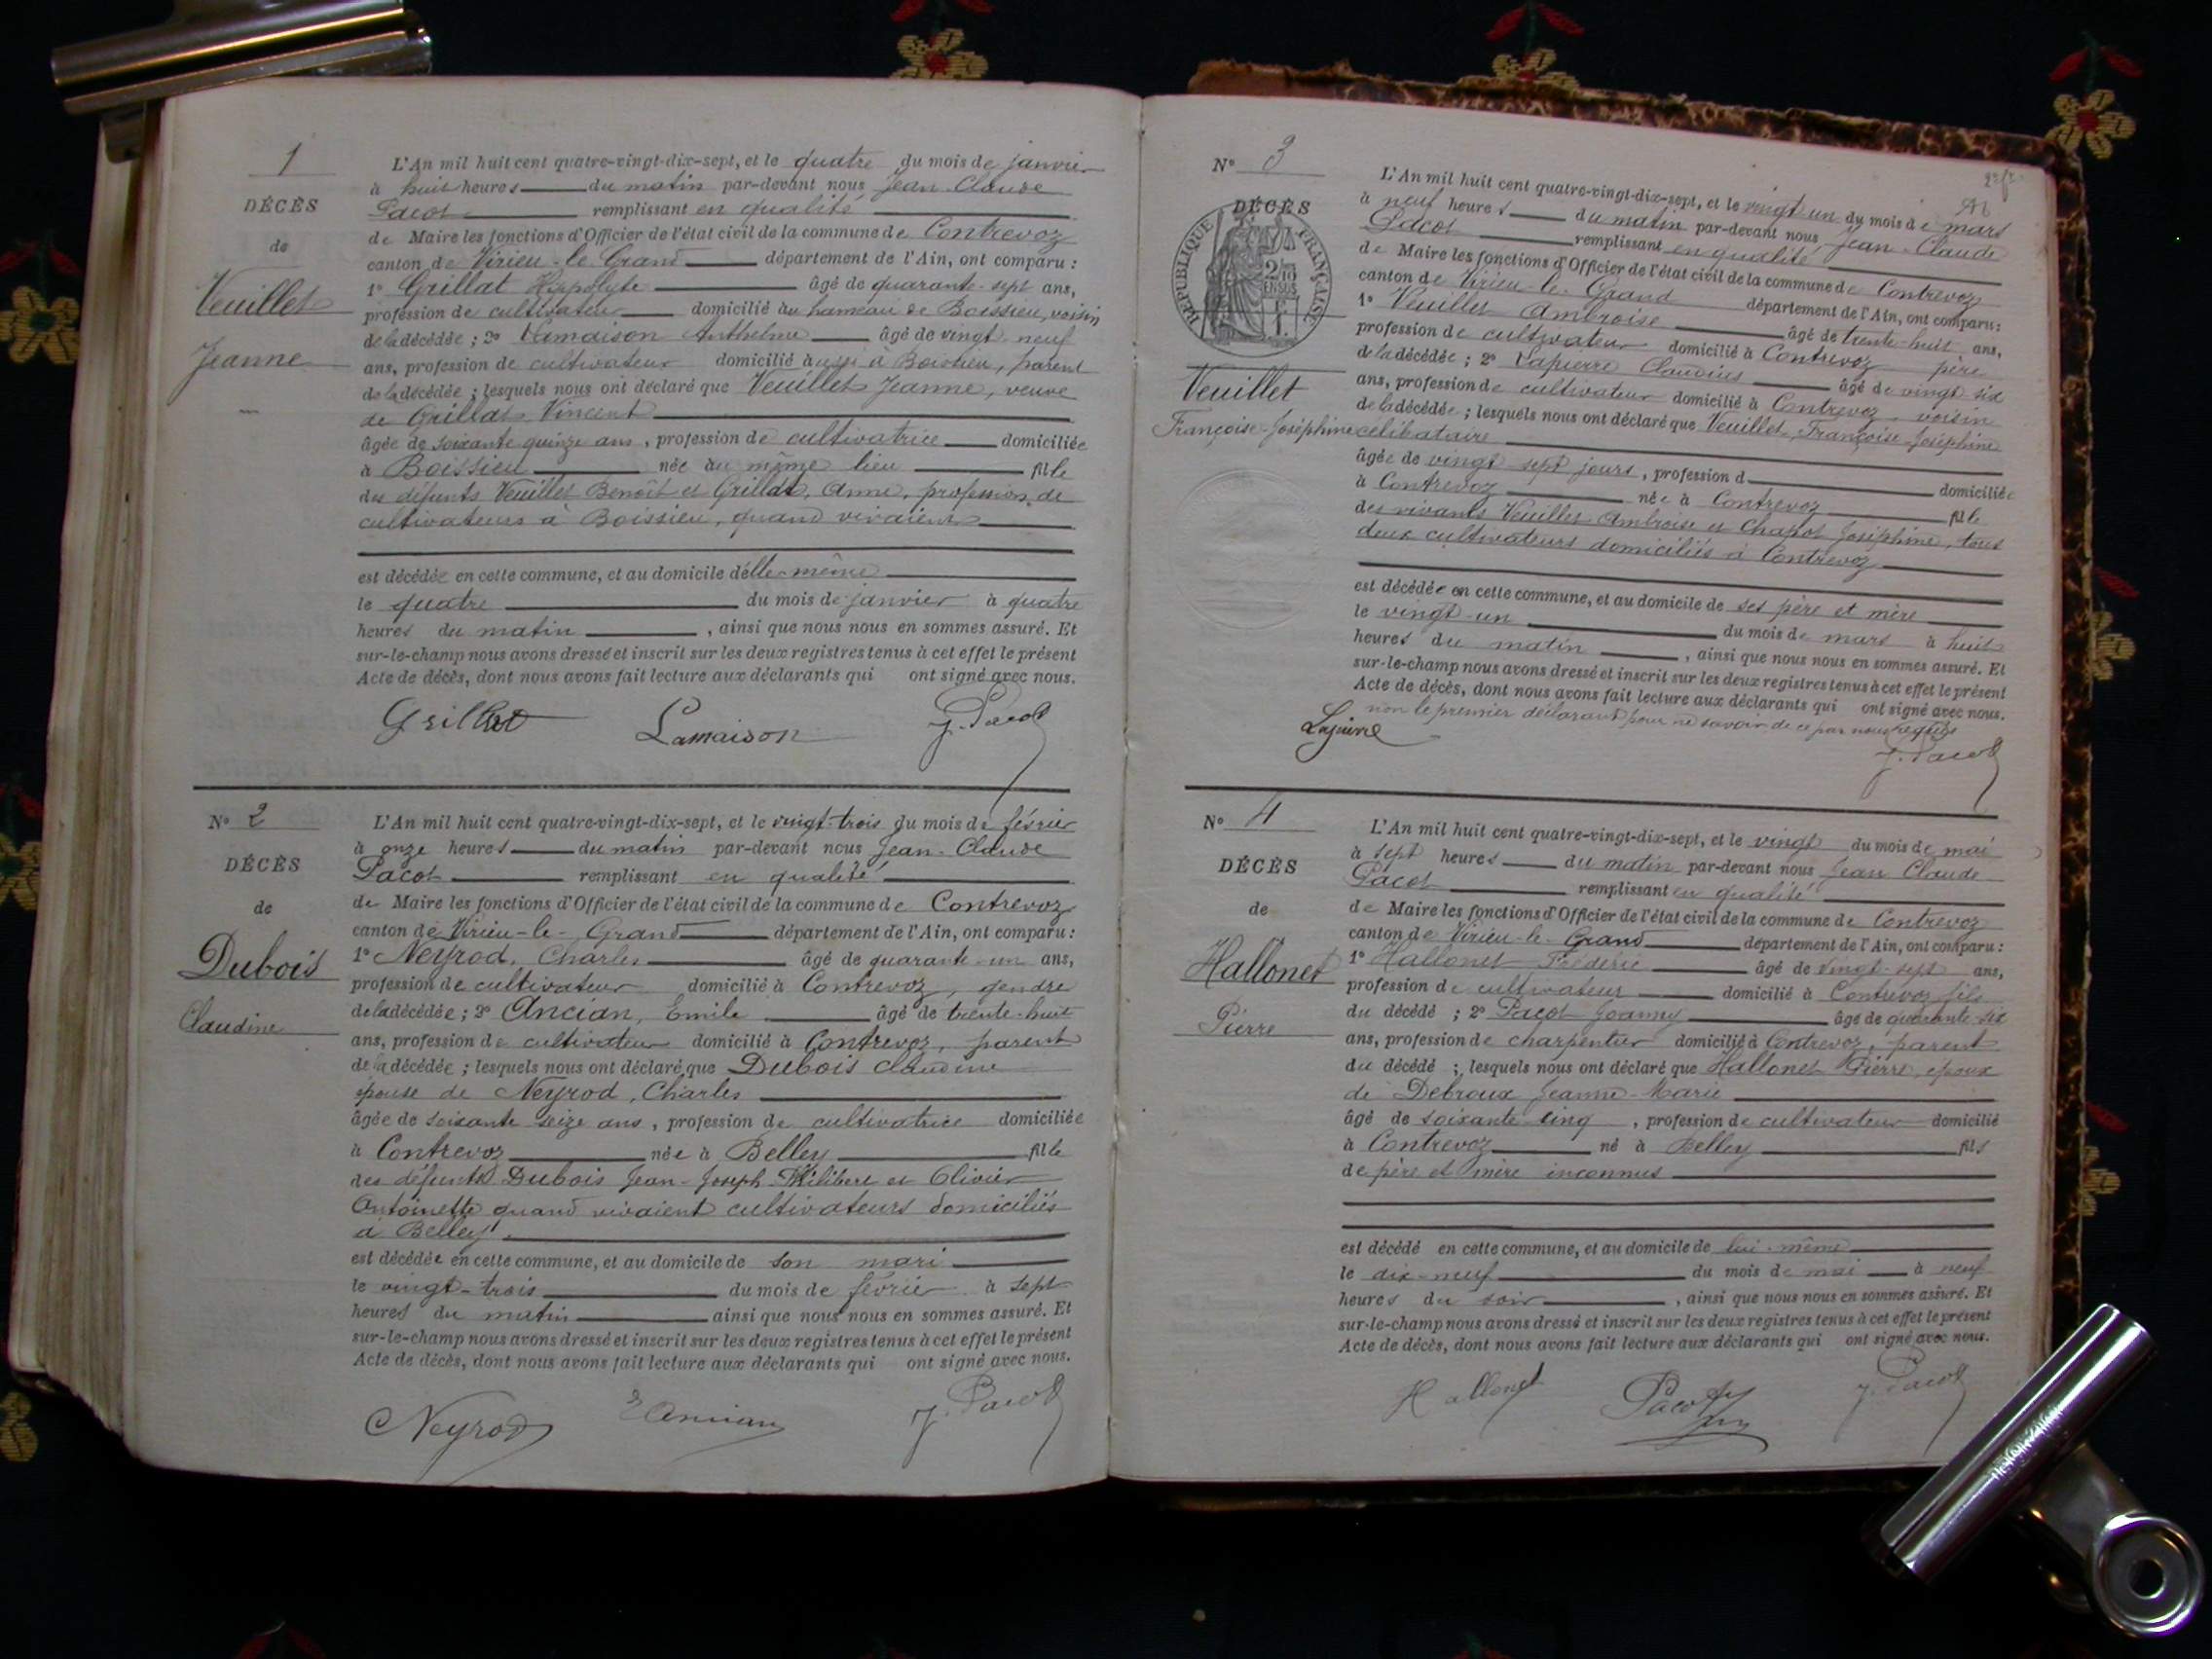 1
DÉCÈS
de
Veuillet
Jeanne
L'An mil huit cent quatre-vingt-dix-sept, et le quatre du mois de janvier
à huit heures du matin par-devant nous Jean-Claude
Pacot remplissant en qualité
de Maire les fonctions d'Officier de l'état civil de la commune de Contrevoz
canton de Virieu-le-Grand département de l'Ain, ont comparu :
1° Grillat Hippolyte âgé de quarante-sept ans,
profession de cultivateur domicilié au hameau de Boissieu, voisin
de la décédée ; 2° Lamaison Anthelme âgé de vingt neuf
ans, profession de cultivateur domicilié aussi à Boissieu, parent
de la décédée ; lesquels nous ont déclaré que Veuillet Jeanne, veuve
de Grillat Vincent
âgée de soixante quinze ans, profession de cultivatrice domiciliée
à Boissieu née au même lieu fille
des défunts Veuillet Benoît et Grillat, Anne, profession de
cultivateurs à Boissieu, quand vivaient
est décédée en cette commune, et au domicile d'elle-même
le quatre du mois de janvier à quatre
heures du matin, ainsi que nous nous en sommes assuré. Et
sur-le-champ nous avons dressé et inscrit sur les deux registres tenus à cet effet le présent
Acte de décès, dont nous avons fait lecture aux déclarants qui ont signé avec nous.
Grillat Lamaison J. Pacot
N° 2
DÉCÈS
de
Dubois
Claudine
L'An mil huit cent quatre-vingt-dix-sept, et le vingt-trois du mois de février
à onze heures du matin par-devant nous Jean-Claude
Pacot remplissant en qualité
de Maire les fonctions d'Officier de l'état civil de la commune de Contrevoz
canton de Virieu-le-Grand département de l'Ain, ont comparu :
1° Neyrod, Charles âgé de quarante-un ans,
profession de cultivateur domicilié à Contrevoz, gendre
de la décédée ; 2° Ancian, Emile âgé de trente-huit
ans, profession de cultivateur domicilié à Contrevoz, parent
de la décédée ; lesquels nous ont déclaré que Dubois Claudine
épouse de Neyrod, Charles
âgée de soixante seize ans, profession de cultivatrice domiciliée
à Contrevoz née à Belley fille
des défunts Dubois Jean-Joseph-Philibert et Olivier
Antoinette quand vivaient cultivateurs domiciliés
à Belley
est décédée en cette commune, et au domicile de son mari
le vingt-trois du mois de février à sept
heures du matin ainsi que nous nous en sommes assuré. Et
sur-le-champ nous avons dressé et inscrit sur les deux registres tenus à cet effet le présent
Acte de décès, dont nous avons fait lecture aux déclarants qui ont signé avec nous.
Neyrod E Ancian J. Pacot
N° 3
DÉCÈS
RÉPUBLIQUE FRANÇAISE
2/10
EN SUS
Veuillet
Françoise-Joséphine
L'An mil huit cent quatre-vingt-dix-sept, et le vingt un du mois de mars
à neuf heures du matin par-devant nous Jean-Claude
Pacot remplissant en qualité
de Maire les fonctions d'Officier de l'état civil de la commune de Contrevoz
canton de Virieu-le-Grand département de l'Ain, ont comparu :
1° Veuillet Ambroise âgé de trente-huit ans,
profession de cultivateur domicilié à Contrevoz père
de la décédée ; 2° Lapierre Claudius âgé de vingt six
ans, profession de cultivateur domicilié à Contrevoz, voisin
de la décédée ; lesquels nous ont déclaré que Veuillet Françoise-Joséphine
célibataire
âgée de vingt sept jours, profession d domiciliée
à Contrevoz née à Contrevoz fille
des vivants Veuillet Ambroise et Chapot Joséphine, tous
deux cultivateurs domiciliés à Contrevoz
est décédée en cette commune, et au domicile de ses père et mère
le vingt-un du mois de mars à huit
heures du matin, ainsi que nous nous en sommes assuré. Et
sur-le-champ nous avons dressé et inscrit sur les deux registres tenus à cet effet le présent
Acte de décès, dont nous avons fait lecture aux déclarants qui ont signé avec nous.
non le premier déclarant pour ne savoir de ce par nous requis
Lapierre J. Pacot
N° 4
DÉCÈS
de
Hallonet
Pierre
L'An mil huit cent quatre-vingt-dix-sept, et le vingt du mois de mai
à sept heures du matin par-devant nous Jean Claude
Pacot remplissant en qualité
de Maire les fonctions d'Officier de l'état civil de la commune de Contrevoz
canton de Virieu-le-Grand département de l'Ain, ont comparu :
1° Hallonet Frédéric âgé de vingt-sept ans,
profession de cultivateur domicilié à Contrevoz fils
du décédé ; 2° Pacot Joanny âgé de quarante-six
ans, profession de charpentier domicilié à Contrevoz, parent
du décédé ; lesquels nous ont déclaré que Hallonet Pierre, époux
de Debroux Jeanne-Marie
âgé de soixante cinq, profession de cultivateur domicilié
à Contrevoz né à Belley fils
de père et mère inconnus
est décédé en cette commune, et au domicile de lui-même
le dix-neuf du mois de mai à neuf
heures du soir, ainsi que nous nous en sommes assuré. Et
sur-le-champ nous avons dressé et inscrit sur les deux registres tenus à cet effet le présent
Acte de décès, dont nous avons fait lecture aux déclarants qui ont signé avec nous.
Hallonet Pacot J. Pacot